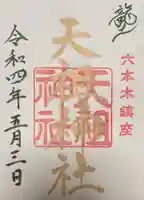 龍
六本木鎮座
天祖神社
天祖神社
令和四年五月三日